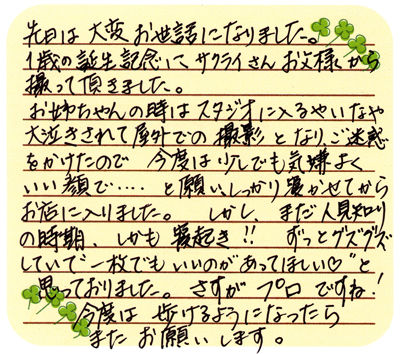 先日は大変お世話になりました。
1歳の誕生記念にて サクライさんお父様から
撮って頂きました。
お姉ちゃんの時はスタジオに入るやいなや
大泣きされて屋外での撮影となりご迷惑
をかけたので 今度は少しでも気嫌よく
いい顔で‥‥ と願い、しっかり寝かせてから
お店に入りました。 しかし、まだ人見知り
の時期、しかも寝起き!! ずっとグズグズ
していて“一枚でもいいのがあってほしい♡”と
思っておりました。 さすが プロ ですね!
今度は 歩けるようになったら
またお願いします。